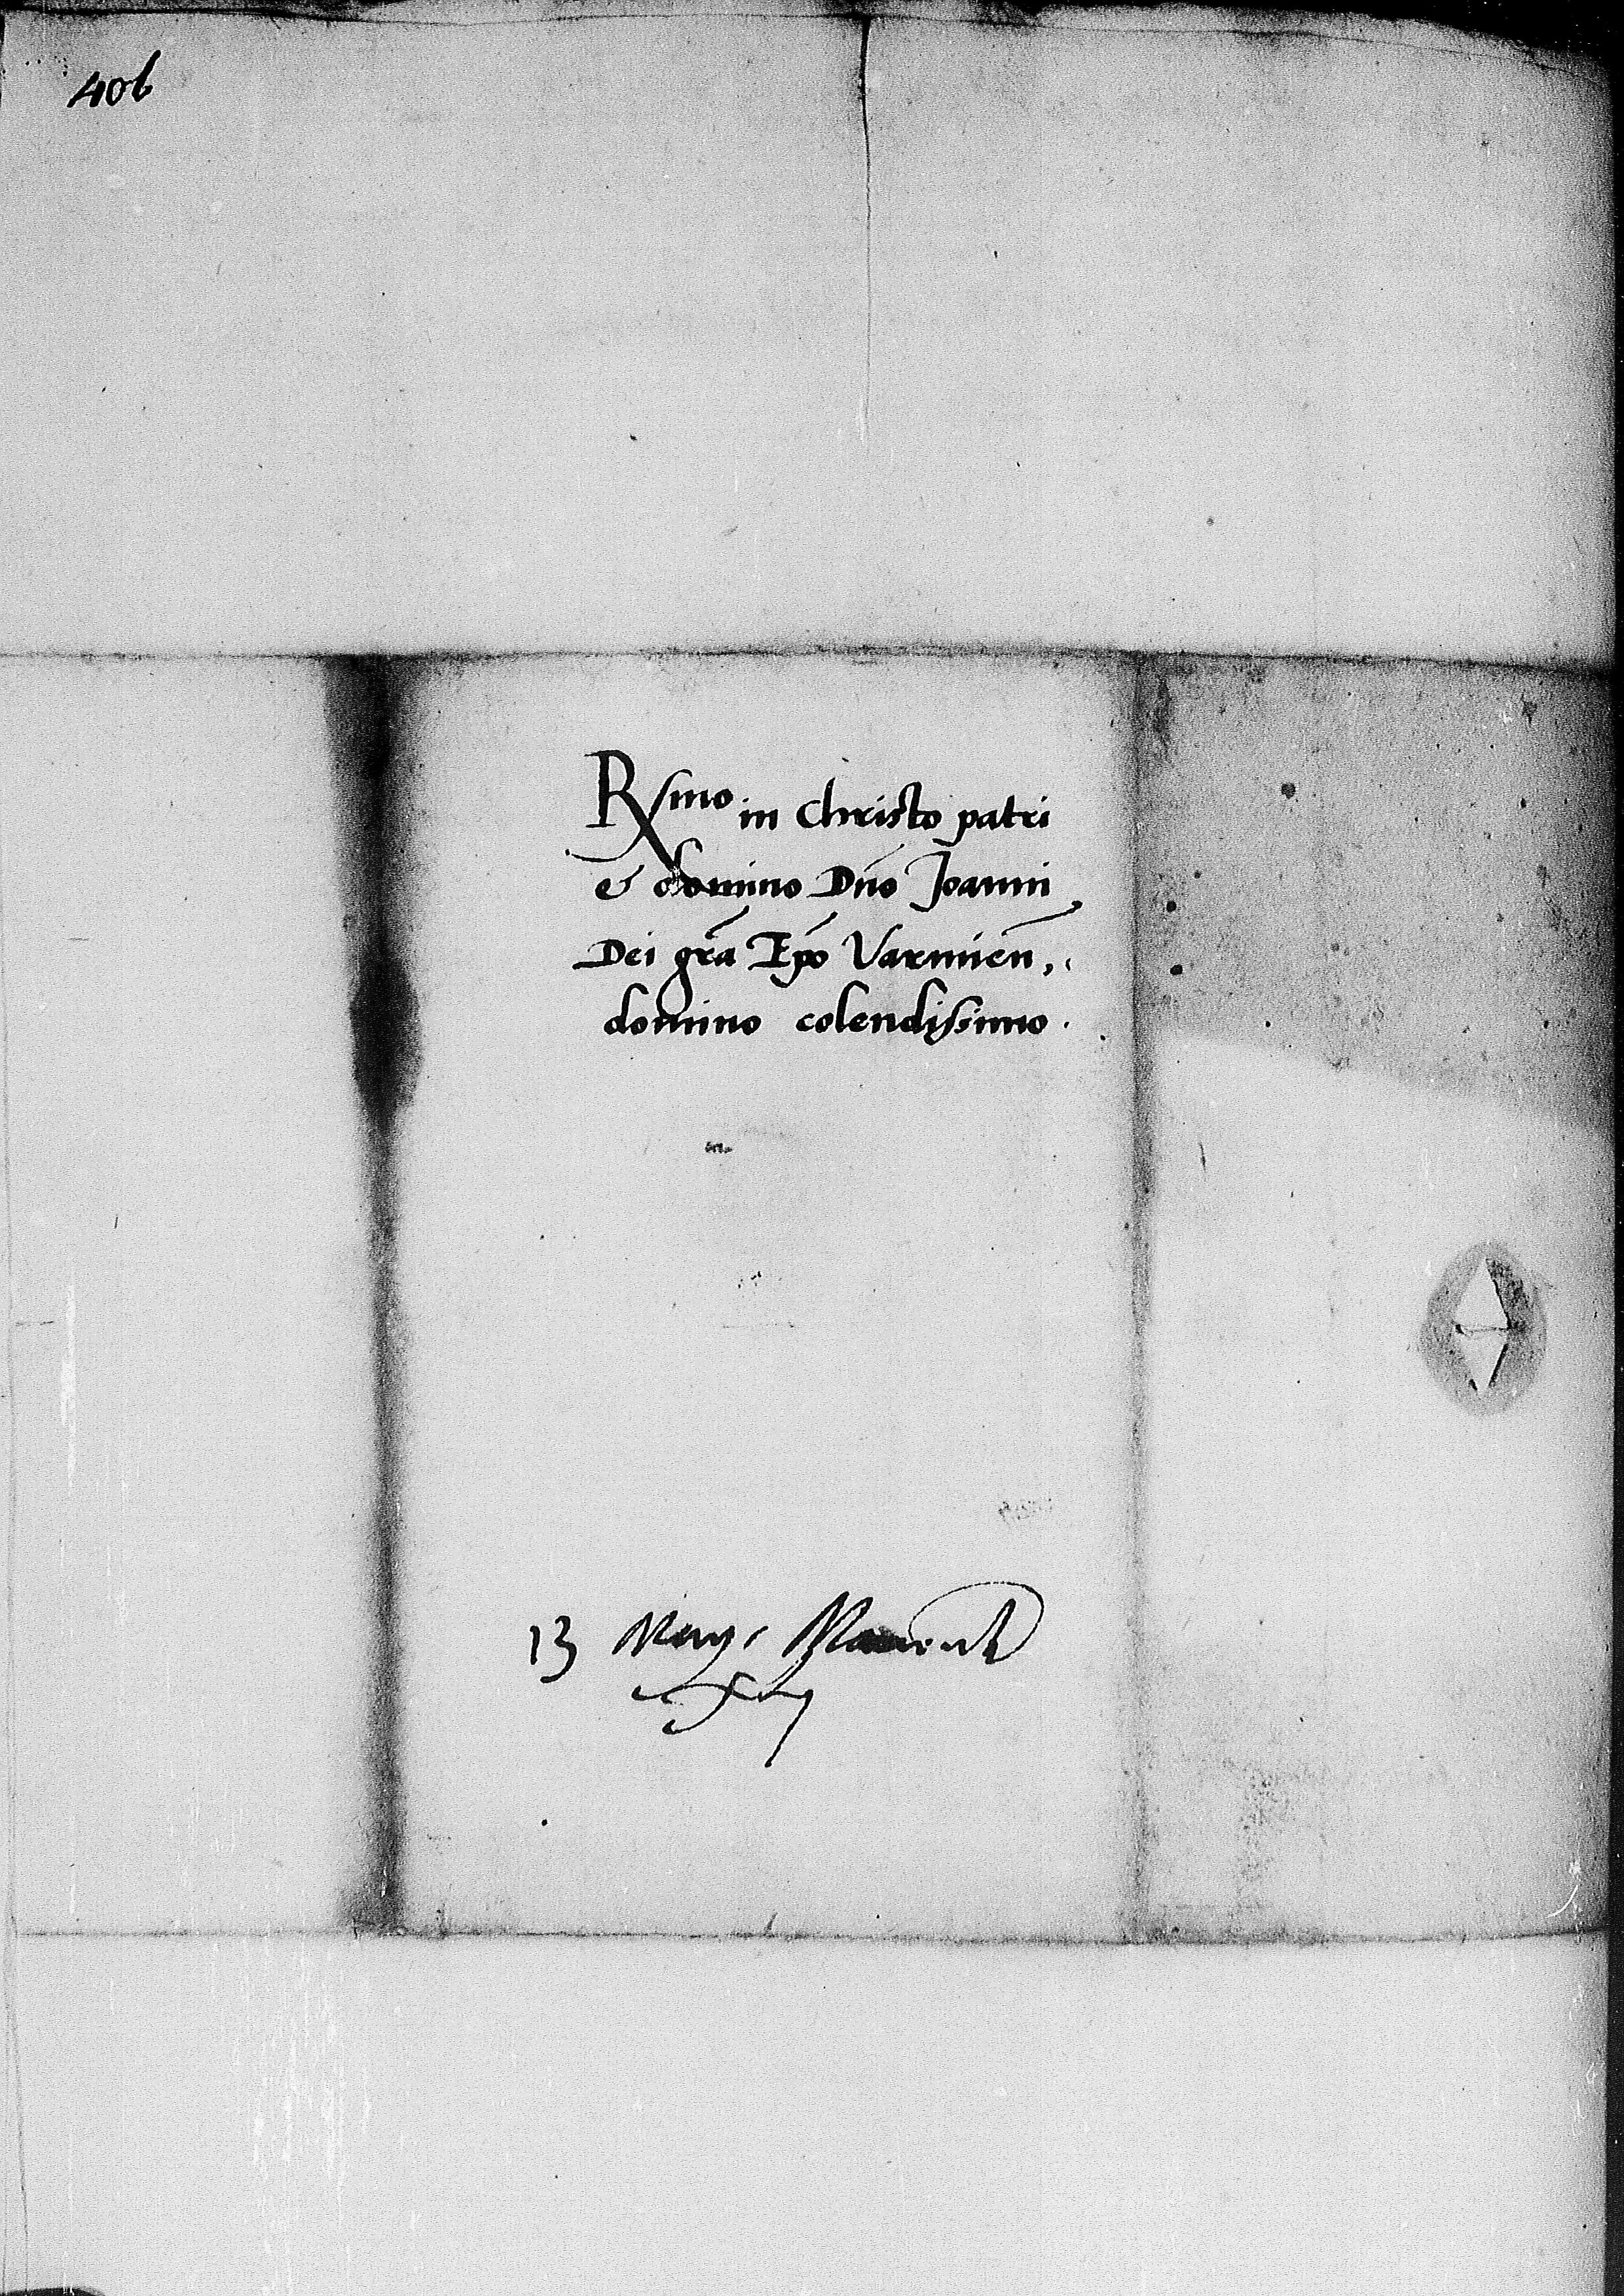 406
Rssmo in Christo patri
& domino Dno Joanni
Dei gra Epo Varmien,
domino colendissimo.
13 Maij